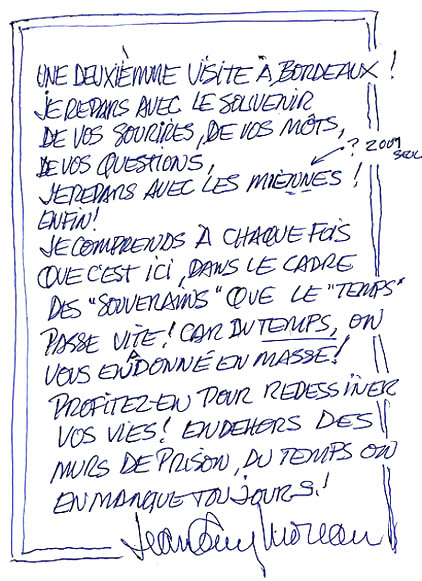 UNE DEUXIÈMME VISITE À BORDEAUX !
JE REPARS AVEC LE SOUVENIR
DE VOS SOURIRES, DE VOS MOTS,
DE VOS QUESTIONS,
? 2009
JE REPARS AVEC LES MIENNES !
ENFIN !
JE COMPRENDS À CHAQUE FOIS
QUE C'EST ICI, DANS LE CADRE
DES "SOUVERAINS" QUE LE "TEMPS"
PASSE VITE ! CAR DU TEMPS, ON
VOUS EN A DONNÉ EN MASSE !
PROFITEZ-EN POUR REDESSINER
VOS VIES ! EN DEHORS DES
MURS DE PRISON, DU TEMPS ON
EN MANQUE TOUJOURS !
Jean Guy Moreau